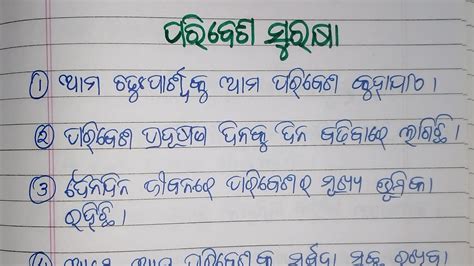 ପରିବେଶ ସୁରକ୍ଷା
୧ ଆମ ଚତୁଃପାର୍ଶ୍ୱକୁ ଆମ ପରିବେଶ କୁହାଯାଏ ।
୨ ପରିବେଶ ପ୍ରଦୂଷଣ ଦିନକୁ ଦିନ ବଢ଼ିବାରେ ଲାଗିଛି ।
୩ ଦୈନନ୍ଦିନ ଜୀବନରେ ପରିବେଶର ମୁଖ୍ୟ ଭୂମିକା
ରହିଛି ।
ପରିବେଶ କୁ ସର୍ବଦା